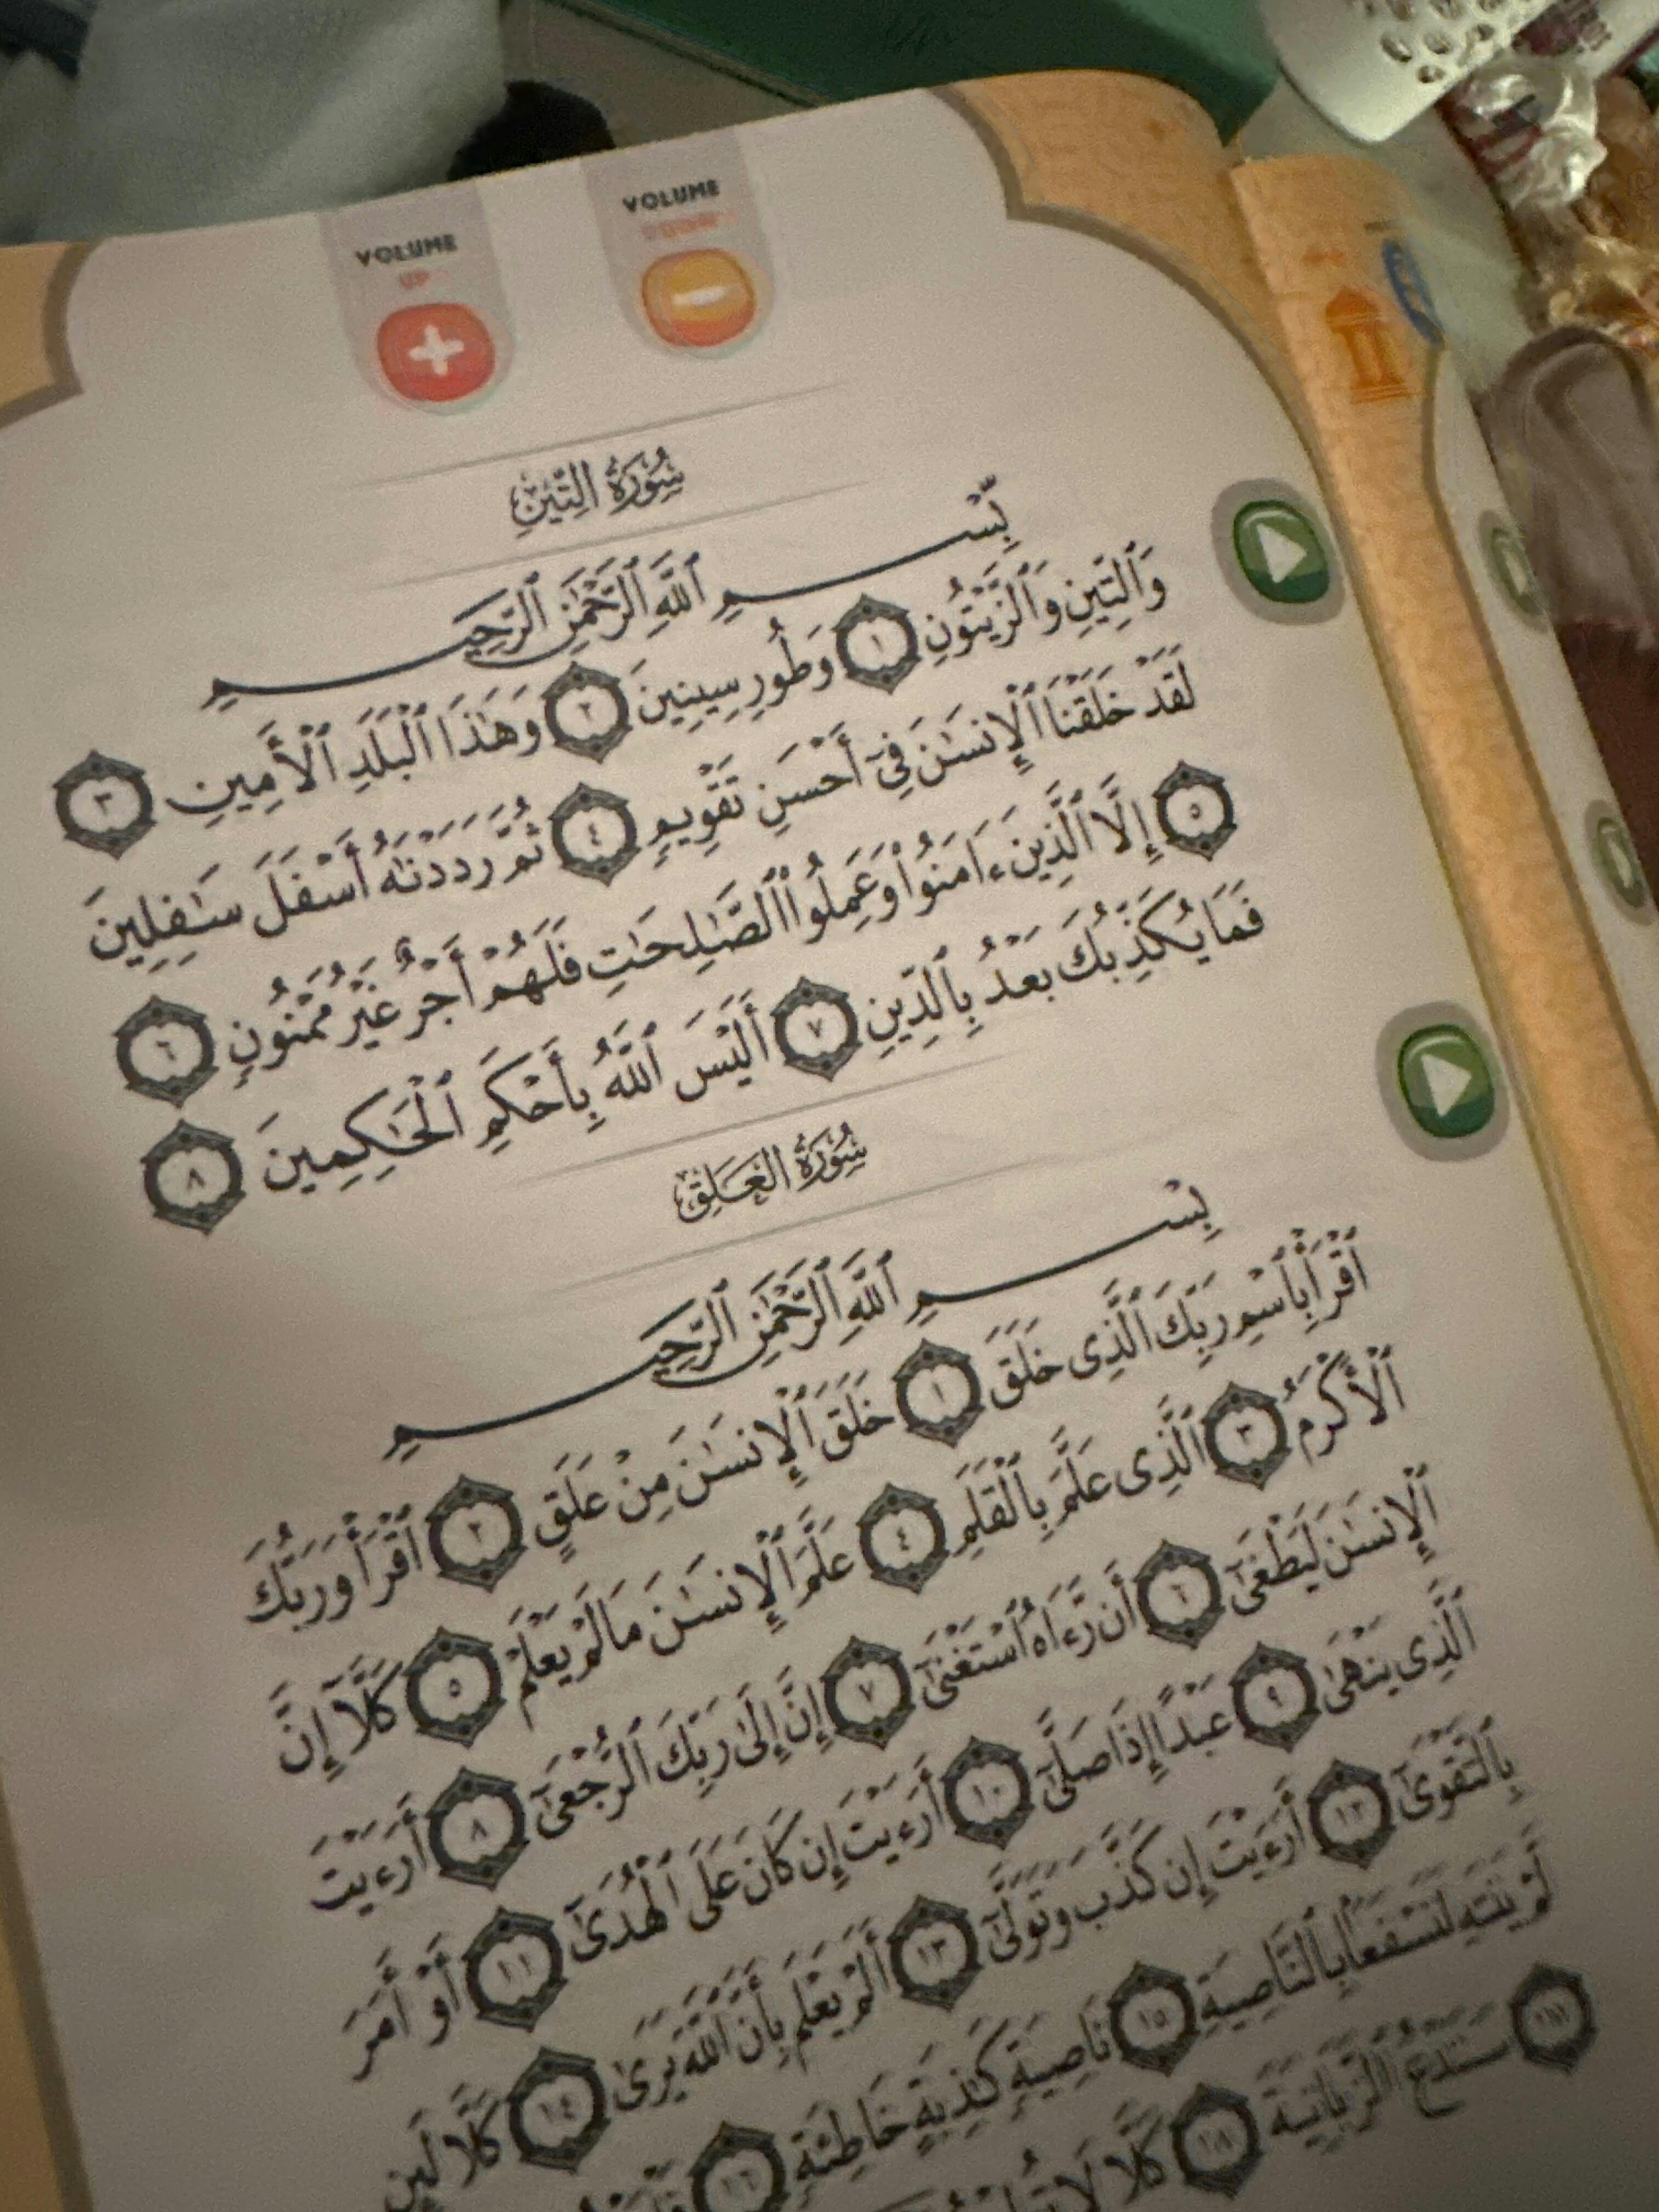 VOLUME
UP
VOLUME
DOWN
سُورَةُ التِّينِ
بِّسْمِ ٱللَّهِ ٱلرَّحْمَٰنِ ٱلرَّحِيمِ
وَٱلتِّينِ وَٱلزَّيْتُونِ ١ وَطُورِ سِينِينَ ٢ وَهَٰذَا ٱلْبَلَدِ ٱلْأَمِينِ ٣
لَقَدْ خَلَقْنَا ٱلْإِنسَٰنَ فِىٓ أَحْسَنِ تَقْوِيمٍ ٤ ثُمَّ رَدَدْنَٰهُ أَسْفَلَ سَٰفِلِينَ
٥ إِلَّا ٱلَّذِينَ ءَامَنُوا۟ وَعَمِلُوا۟ ٱلصَّٰلِحَٰتِ فَلَهُمْ أَجْرٌ غَيْرُ مَمْنُونٍ ٦
فَمَا يُكَذِّبُكَ بَعْدُ بِٱلدِّينِ ٧ أَلَيْسَ ٱللَّهُ بِأَحْكَمِ ٱلْحَٰكِمِينَ ٨
سُورَةُ الْعَلَقِ
بِسْمِ ٱللَّهِ ٱلرَّحْمَٰنِ ٱلرَّحِيمِ
ٱقْرَأْ بِٱسْمِ رَبِّكَ ٱلَّذِى خَلَقَ ١ خَلَقَ ٱلْإِنسَٰنَ مِنْ عَلَقٍ ٢ ٱقْرَأْ وَرَبُّكَ
ٱلْأَكْرَمُ ٣ ٱلَّذِى عَلَّمَ بِٱلْقَلَمِ ٤ عَلَّمَ ٱلْإِنسَٰنَ مَا لَمْ يَعْلَمْ ٥ كَلَّآ إِنَّ
ٱلْإِنسَٰنَ لَيَطْغَىٰٓ ٦ أَن رَّءَاهُ ٱسْتَغْنَىٰٓ ٧ إِنَّ إِلَىٰ رَبِّكَ ٱلرُّجْعَىٰٓ ٨ أَرَءَيْتَ
ٱلَّذِى يَنْهَىٰ ٩ عَبْدًا إِذَا صَلَّىٰٓ ١٠ أَرَءَيْتَ إِن كَانَ عَلَى ٱلْهُدَىٰٓ ١١ أَوْ أَمَرَ
بِٱلتَّقْوَىٰٓ ١٢ أَرَءَيْتَ إِن كَذَّبَ وَتَوَلَّىٰٓ ١٣ أَلَمْ يَعْلَم بِأَنَّ ٱللَّهَ يَرَىٰ ١٤ كَلَّا لَئِن
لَّمْ يَنتَهِ لَنَسْفَعًۢا بِٱلنَّاصِيَةِ ١٥ نَاصِيَةٍ كَٰذِبَةٍ خَاطِئَةٍ ١٦
سَنَدْعُ ٱلزَّبَانِيَةَ ١٨ كَلَّا لَا